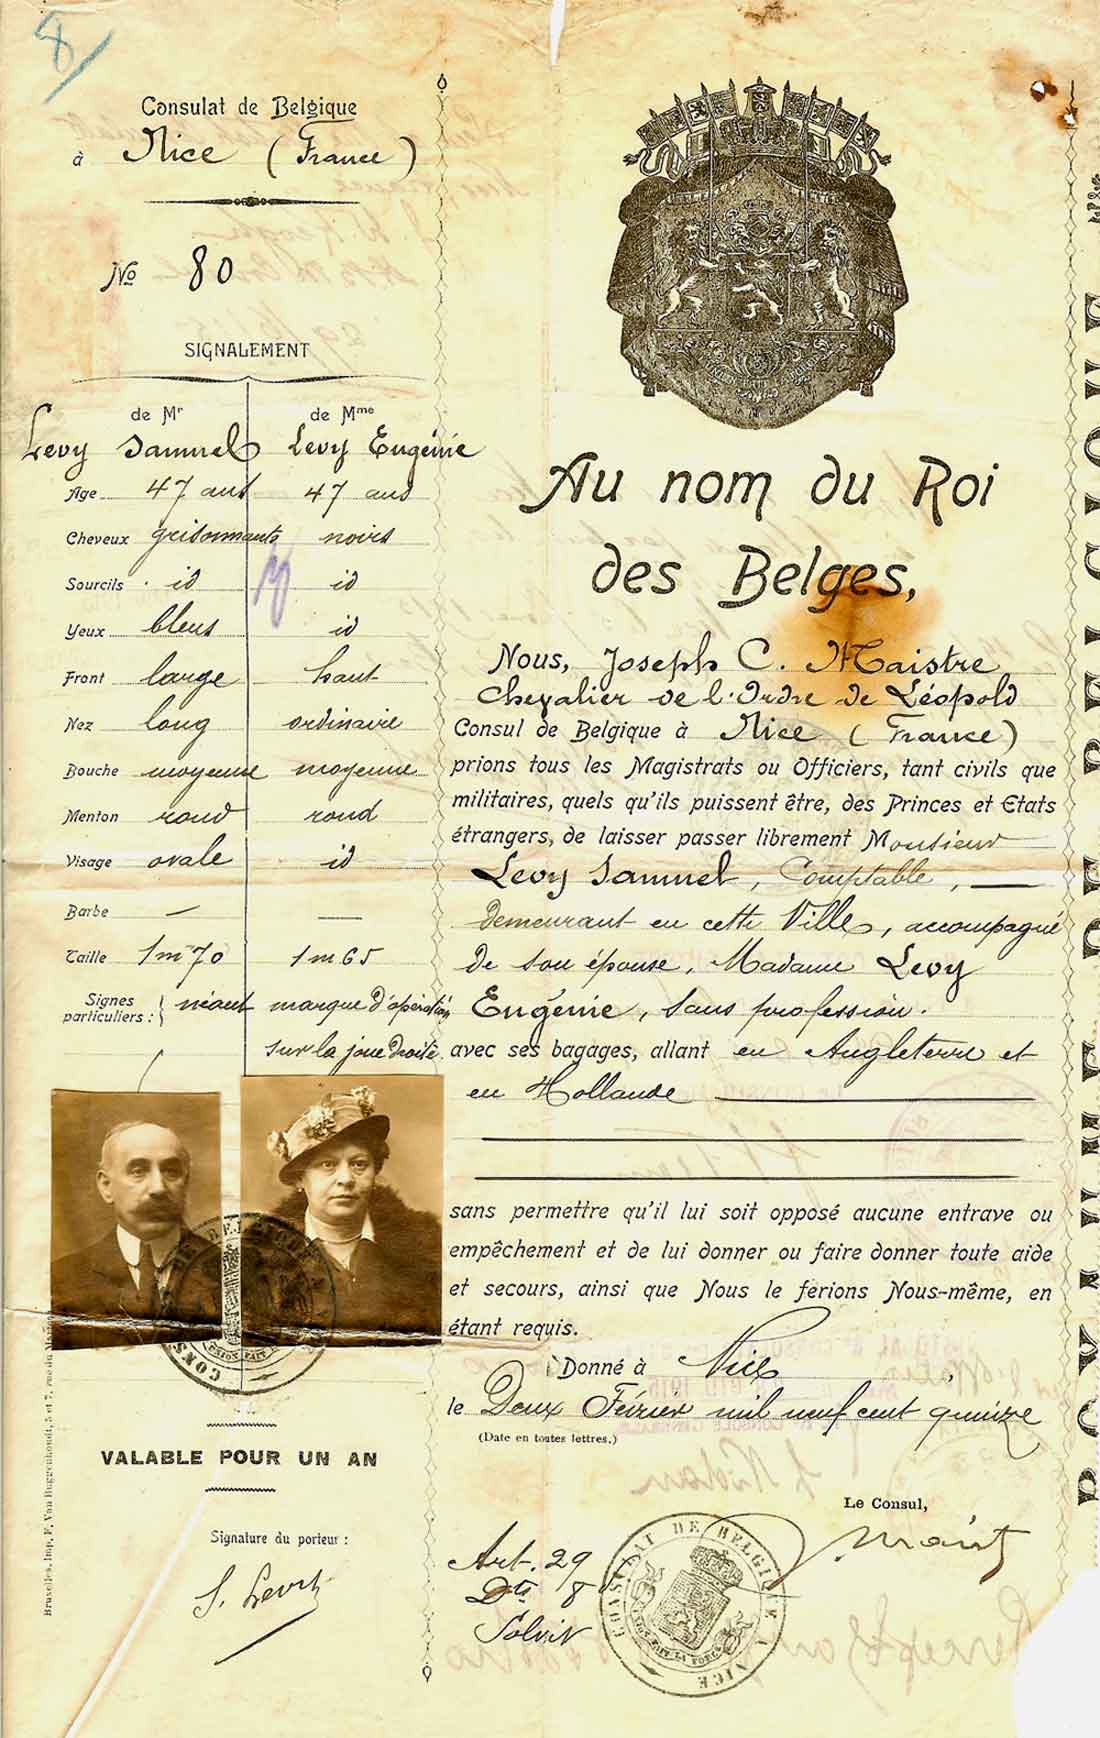 8
Consulat de Belgique
à Nice (France)
No 80
SIGNALEMENT
de Mr de Mme
Levy Samuel Levy Eugénie
Age 47 ans 47 ans
Cheveux grisonnants noirs
Sourcils id id
Yeux bleus id
Front large haut
Nez long ordinaire
Bouche moyenne moyenne
Menton rond rond
Visage ovale id
Barbe — —
Taille 1m70 1m65
Signes particuliers : néant marque d'opération
sur la joue droite
VALABLE POUR UN AN
Signature du porteur :
S. Levy
Bruxelles, Imp. F. Van Buggenhoudt, 5 et 7, rue du
Au nom du Roi
des Belges,
Nous, Joseph C. Maistre
Chevalier de l'Ordre de Léopold
Consul de Belgique à Nice (France)
prions tous les Magistrats ou Officiers, tant civils que
militaires, quels qu'ils puissent être, des Princes et Etats
étrangers, de laisser passer librement Monsieur
Levy Samuel, Comptable, —
demeurant en cette Ville, accompagné
de son épouse, Madame Levy
Eugénie, sans profession.
avec ses bagages, allant en Angleterre et
en Hollande
sans permettre qu'il lui soit opposé aucune entrave ou
empêchement et de lui donner ou faire donner toute aide
et secours, ainsi que Nous le ferions Nous-même, en
étant requis.
Donné à Nice,
le Deux Février mil neuf cent quinze
(Date en toutes lettres.)
Le Consul,
Art. 29
Dts 8
Solvit
CONSULAT DE BELGIQUE A NICE
L'UNION FAIT LA FORCE